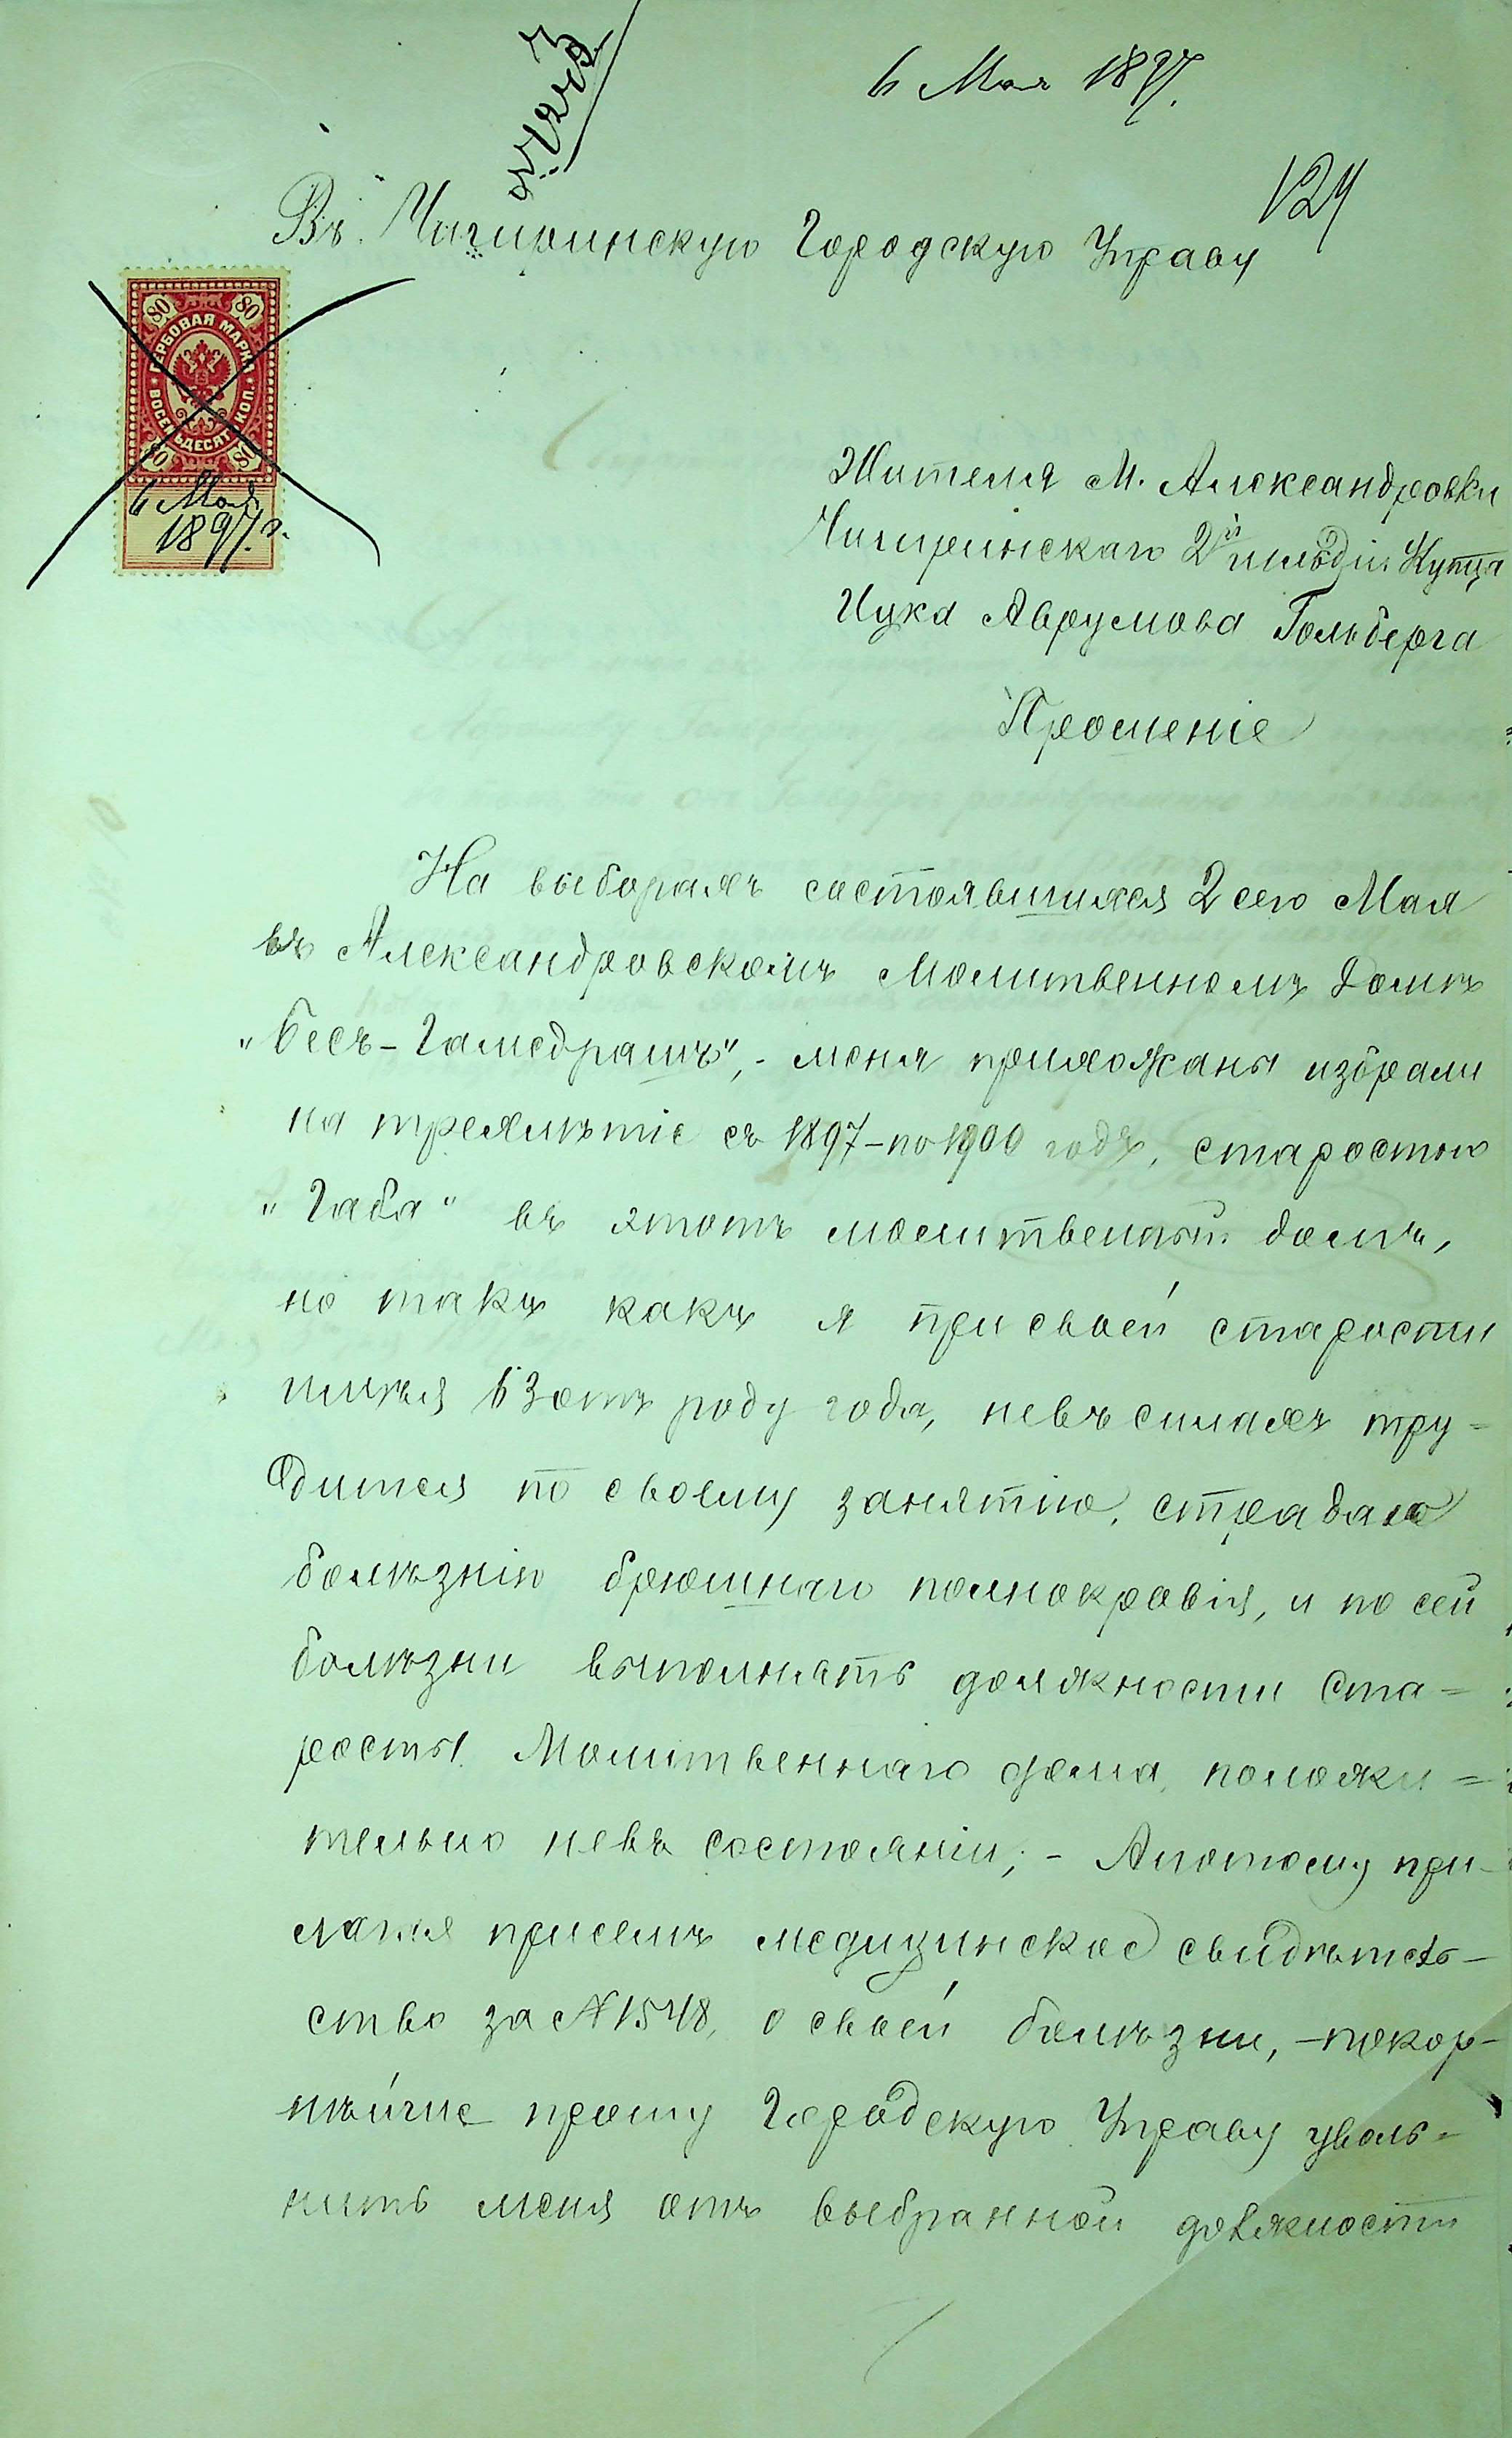 6 Мая 1897.
124
Въ Чигиринскую Городскую Управу
80 80
ГЕРБОВАЯ МАРКА
ВОСЕМЬДЕСЯТ КОП.
80 80
6 Мая
1897 г.
Жителя М. Александровки
Чигиринскаго 2й гильдіи Купца
Ицка Аврумова Гольберга
Прошеніе
На выборахъ состоявшихся 2 сего Мая
въ Александровскомъ Молитвенномъ Домѣ
"Бесъ-Гамедрашъ",- меня прихожаны избрали
на трехлѣтіе съ 1897-по 1900 годъ, старостою
"Габа" въ этотъ молитвенный домъ,
но такъ какъ я при своей старости
имѣя 63 отъ роду года, невъ силахъ тру-
дится по своему занятію, страдаю
болѣзнію брюшнаго полнокровія, и по сей
болѣзни выполнять должности Ста-
росты Молитвеннаго дома, положи-
тельно невъ состояніи;- Апотому при-
лагая присемъ медицинское свидѣтель-
ство за № 1548, о своей болѣзни, -покор-
нѣйше прошу Городскую Управу уволь-
нить меня отъ выбранной должности